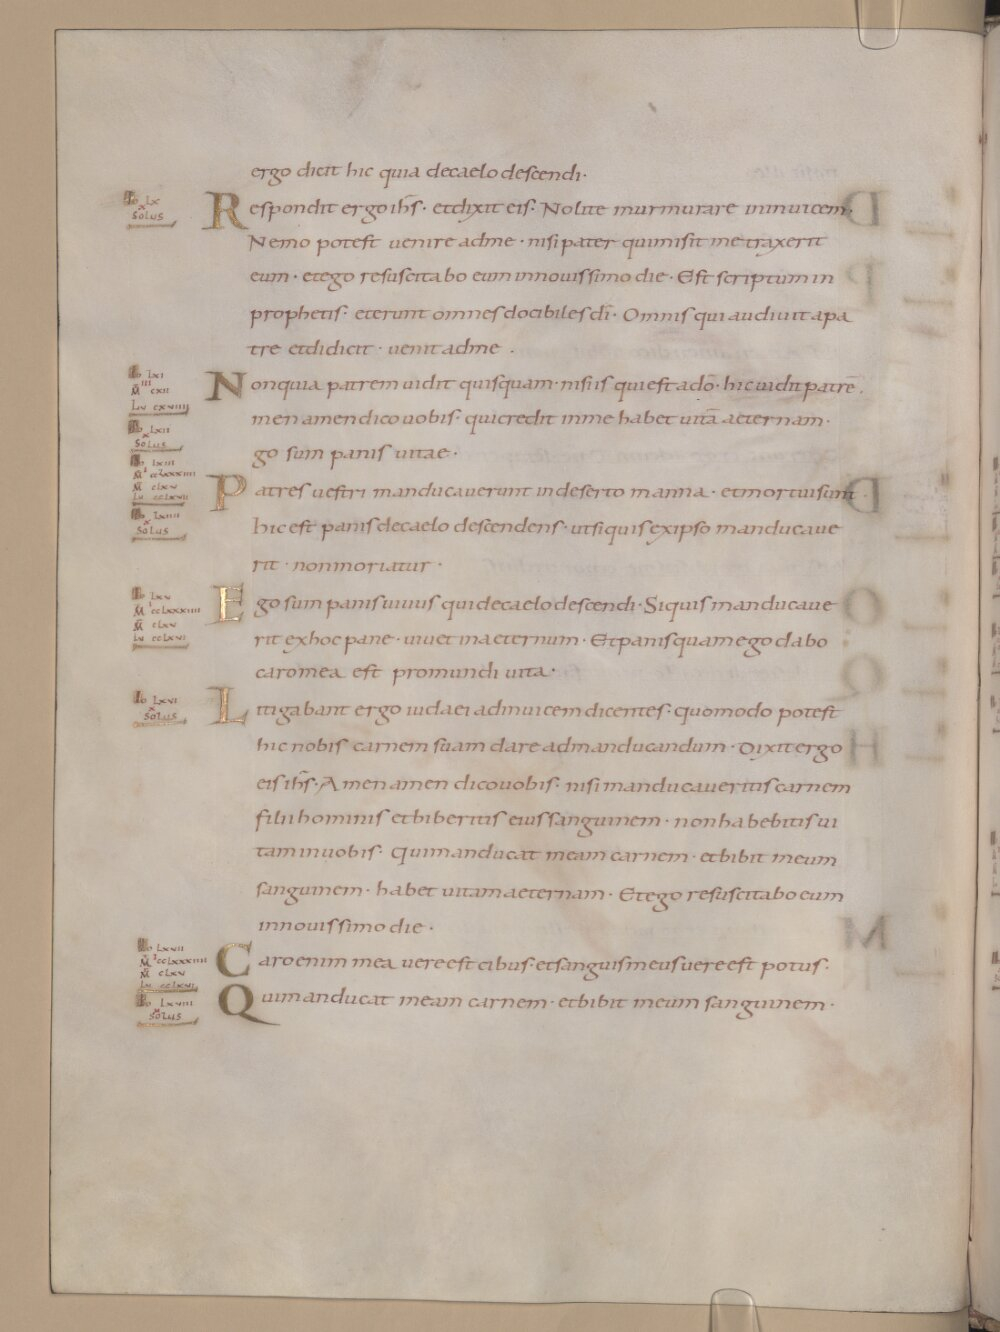 ergo dicit hic quia decaelo descendi·
Io lx
x
solus
Respondit ergo ihs· etdixit eis· Nolite murmurare ininuicem·
Nemo potest uenire adme · nisi pater quimisit me traxerit
eum · etego resuscitabo eum innouissimo die · Est scriptum in
prophetis· eterunt omnes docibiles di· Omnis qui audiuit apa
tre etdidicit · uenit adme ·
Io lxi
III
M cxii
Lu cxviiii
Nonquia patrem uidit quisquam· nisi is qui est ado· hic uidit patrē·
men amen dico uobis· quicredit inme habet uitā aeternam·
Io lxii
x
solus
go sum panis uitae·
Io lxiii
M cclxxxiiii
M clxv
Lu cclxvii
Patres uestri manducauerunt indeserto manna · etmortuisunt ·
Io lxiiii
x
solus
hic est panis decaelo descendens· utsiquis exipso manducaue
rit · nonmoriatur ·
Io lxv
M cclxxxiiii
M clxv
Lu cclxvi
Ego sum panis uiuus quidecaelo descendi· Siquis manducaue
rit exhoc pane · uiuet inaeternum · Etpanis quam ego dabo
caromea est promundi uita·
Io lxvi
x
solus
Litigabant ergo iudaei adinuicem dicentes· quomodo potest
hic nobis carnem suam dare admanducandum · Dixit ergo
eis ihs· Amen amen dicouobis· nisi manducaueritis carnem
filii hominis etbiberitis eius sanguinem · non habebitis ui
tam inuobis· Quimanducat meam carnem · etbibit meum
sanguinem · habet uitam aeternam · Etego resuscitabo eum
innouissimo die ·
Io lxvii
M cclxxxiiii
M clxv
Lu cclxvi
Caro enim mea uere est cibus· etsanguis meus uere est potus·
Io lxviii
x
solus
Quimanducat meam carnem · etbibit meum sanguinem ·